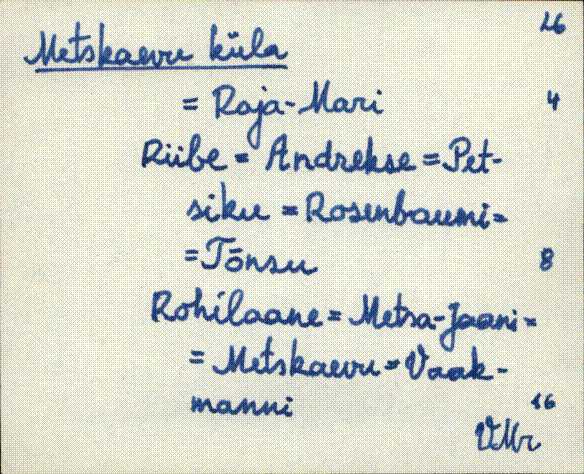 26
Metskaevu küla
= Raja-Mari 4
Riibe = Andrekse = Pet-
siku = Rosenbaumi =
= Tõnsu 8
Rohilaane = Metsa-Jaani =
= Metskaevu = Vaak-
manni 16
VMr